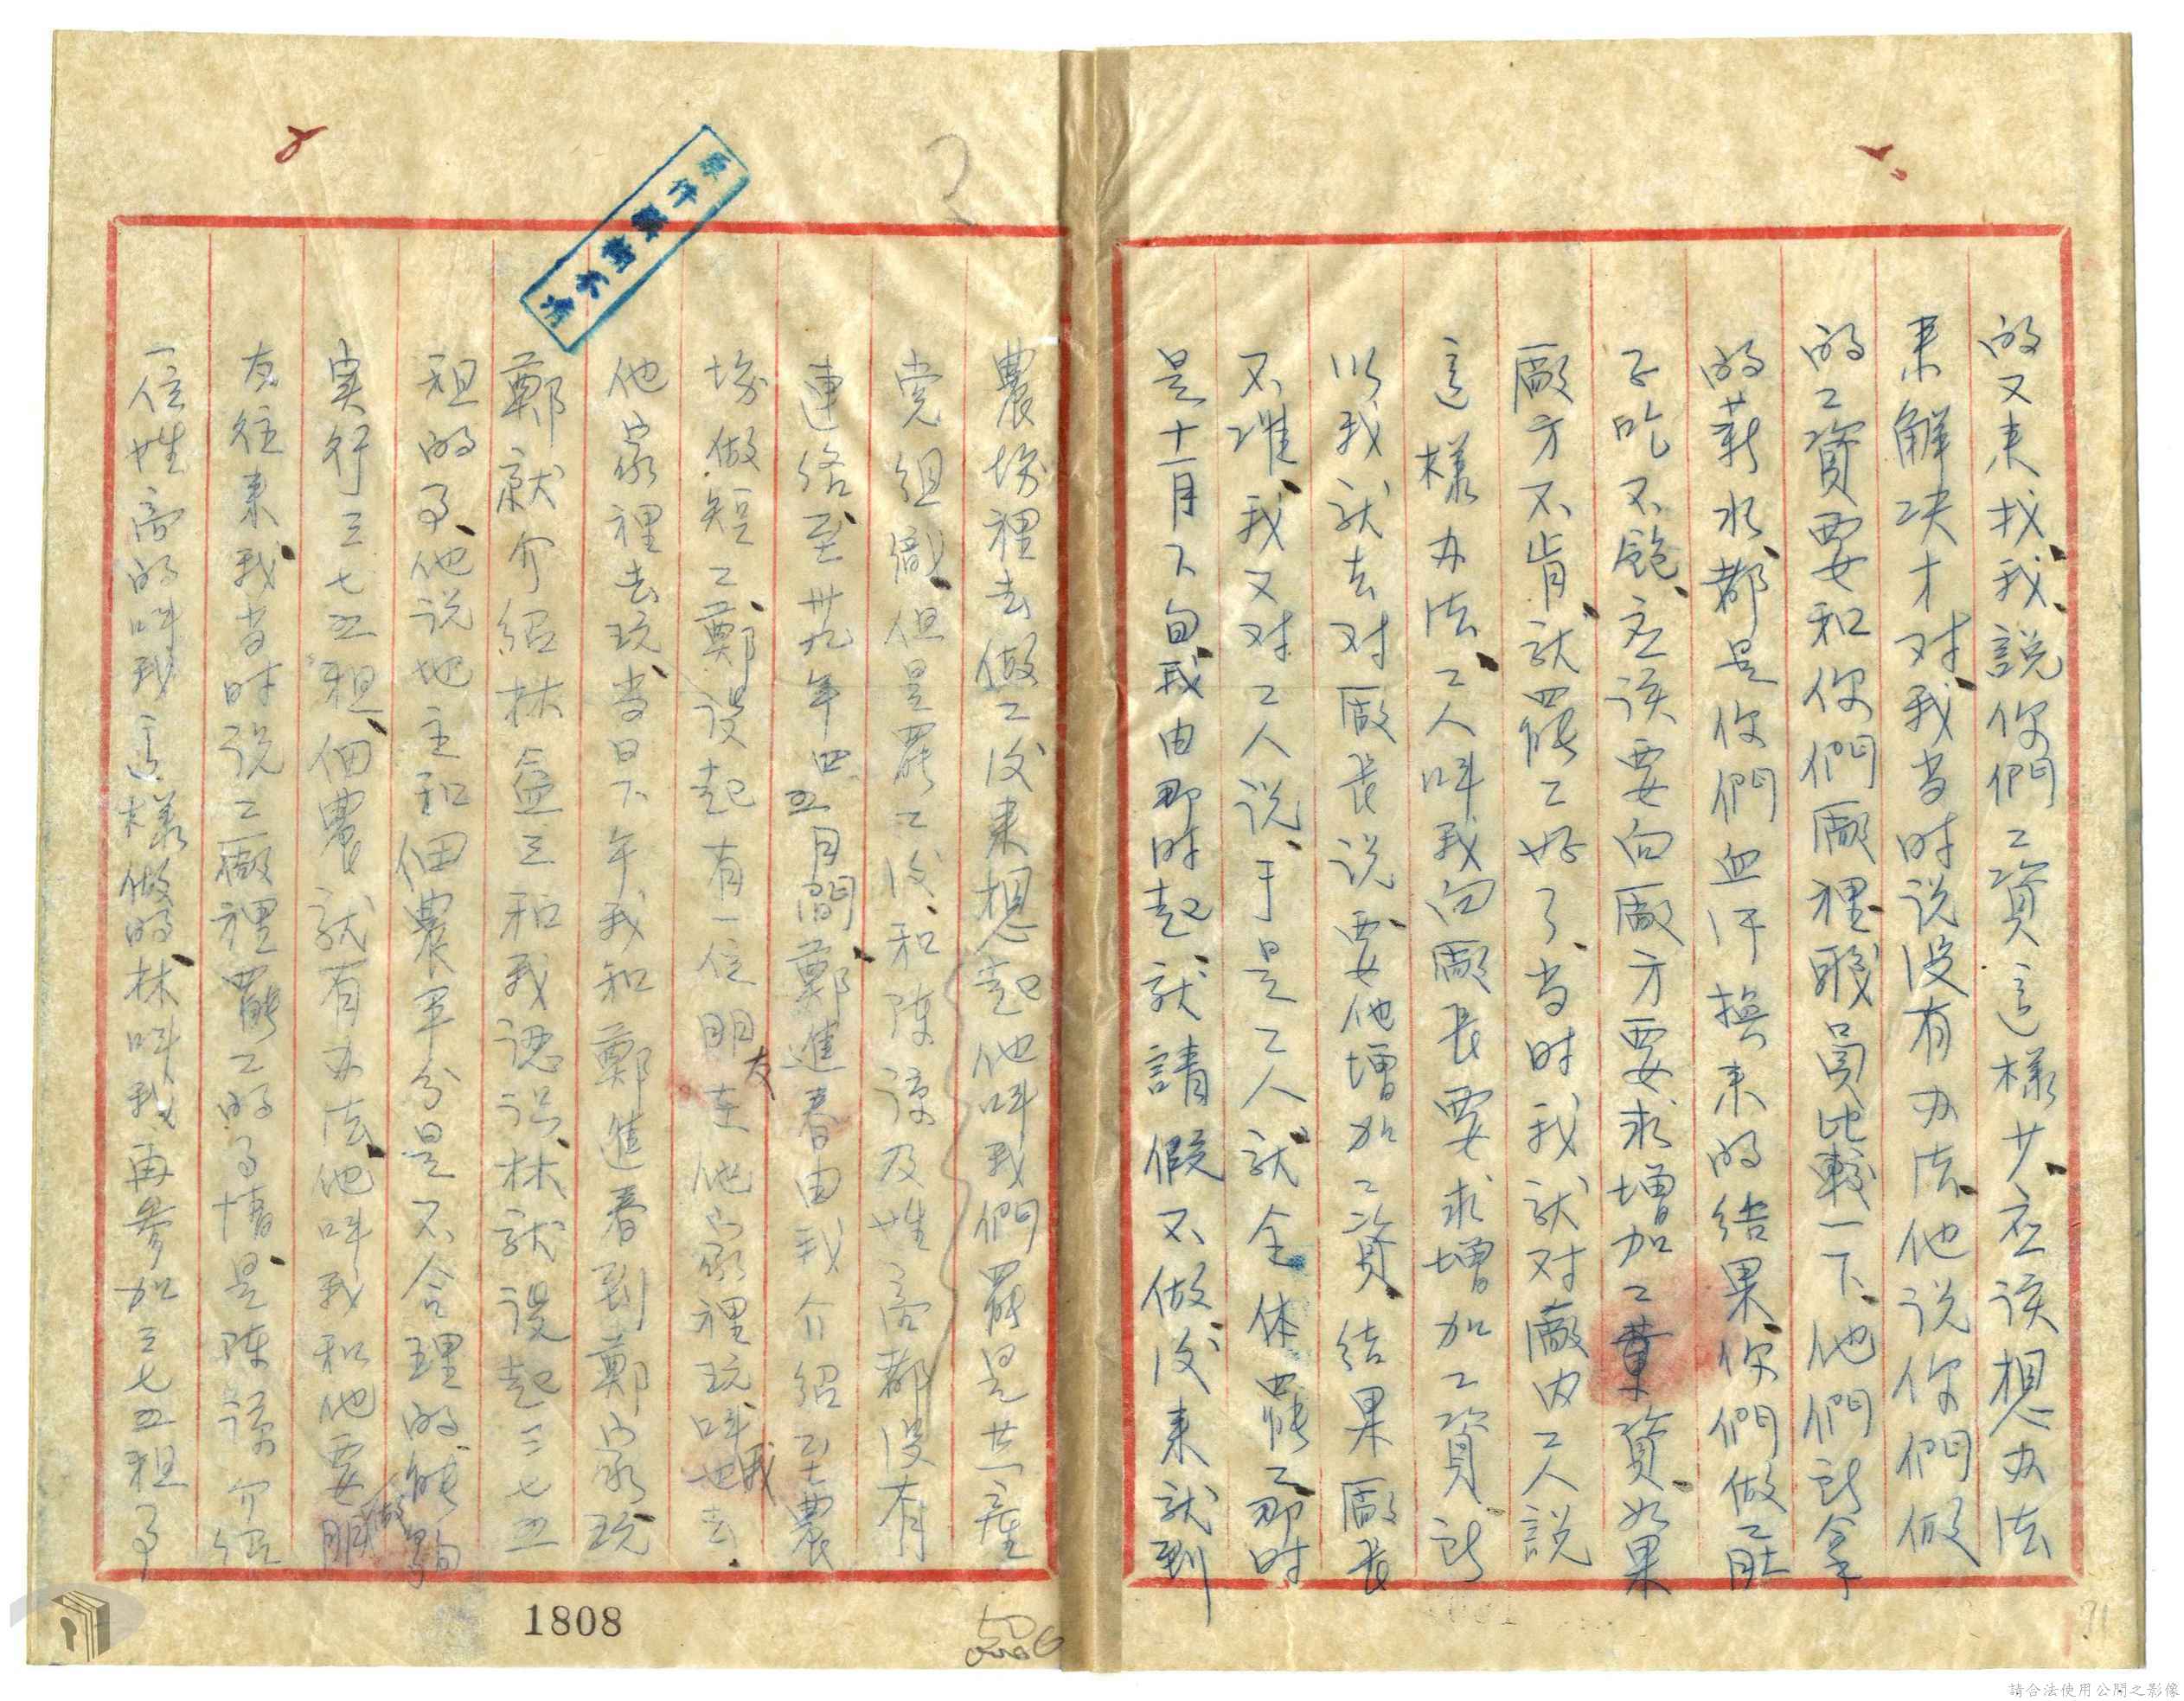 的又来找我、說你們工資這樣少、应该想办法
来解决才对、我当时说没有办法、他说你們做
的工資要和你們廠裡職員比較一下、他們所拿
的薪水、都是你們血汗換来的结果、你們做工肚
子吃不飽、应该要向廠方要求增加工資、如果
廠方不肯、就罷工好了、当时我就对廠内工人説
這樣办法、工人叫我向廠長要求增加工資、所
以我就去对廠長说、要他增加工資、结果廠長
不准、我又对工人说、于是工人就全体罷工、那时
是十一月下旬、我由那时起、就請假不做、後来就到
農場裡去做工後来想起他叫我們罷是共產
党組織、但是罷工後、和陈諒及姓高都没有
連络、至卅九年四、五月間、鄭進春由我介紹至農
場做短工、鄭谈起有一位朋友在他家裡玩叫我去
他家裡去玩、当日下午我和鄭進春到鄭家玩
鄭就介紹林益三和我認识、林就谈起三七五
租的事、他说地主和佃農平分是不合理的、能夠
実行三七五租、佃農就有办法、他叫我和他要做朋
友往来、我当时说工廠裡罷工的事情、是陈諒介紹
一位姓高的叫我這樣做的、林叫我再參加三七五租事
原存檔案不清
1808
請合法使用公開之影像